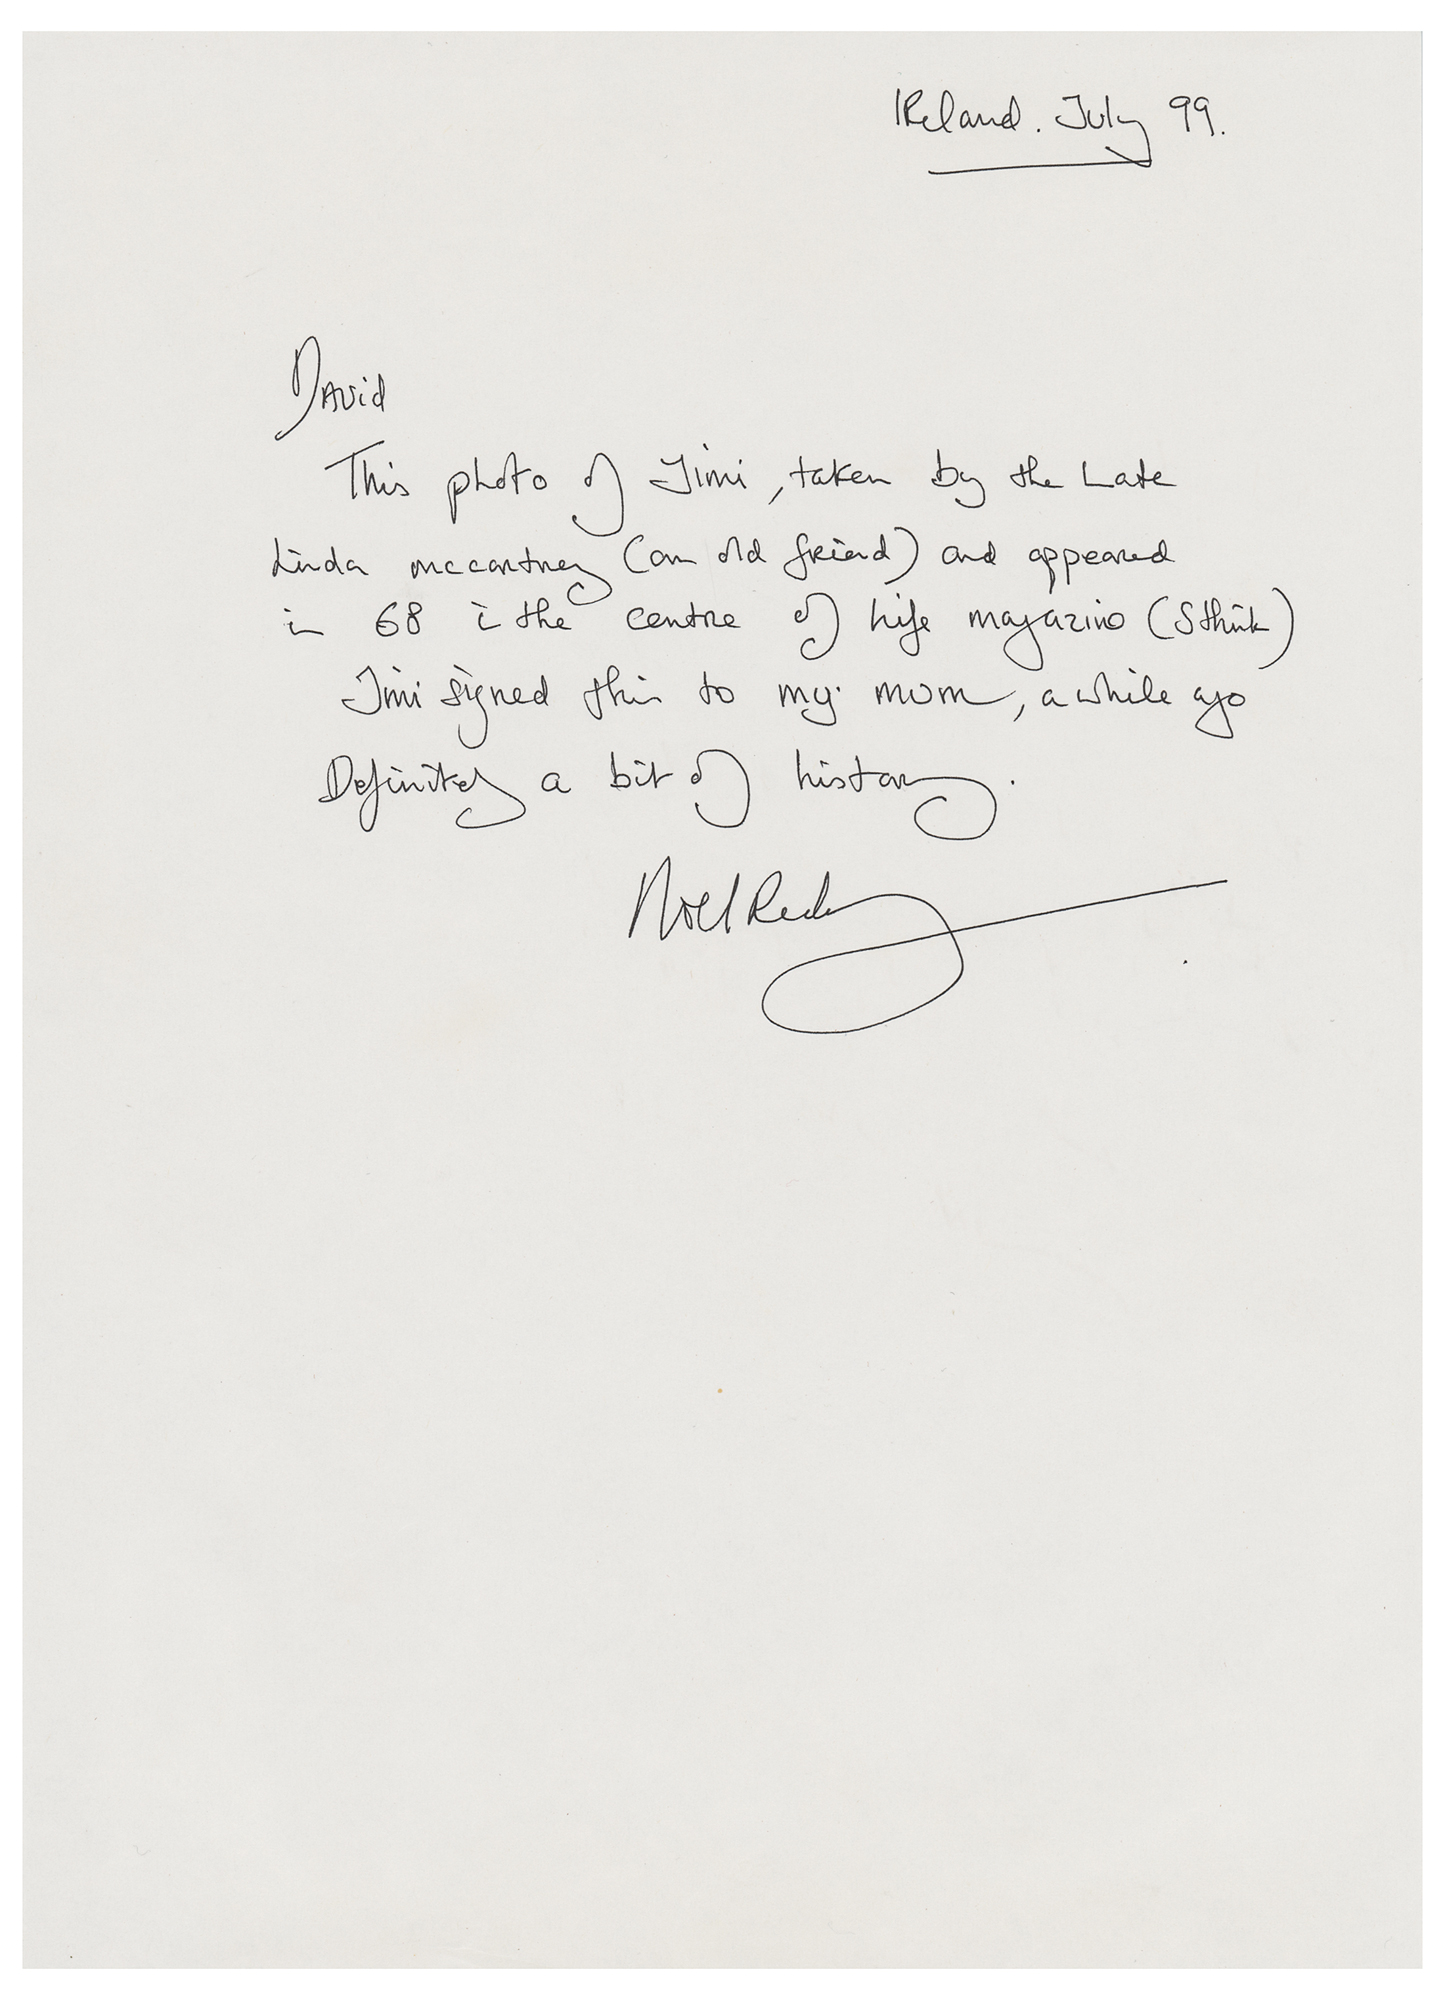 Ireland. July 99.
David
This photo of Jimi, taken by the Late
Linda mccartney (an old friend) and appeared
in 68 in the centre of Life magazine (I think)
Jimi signed this to my mum, a while ago
Definitely a bit of history.
Noel Redding